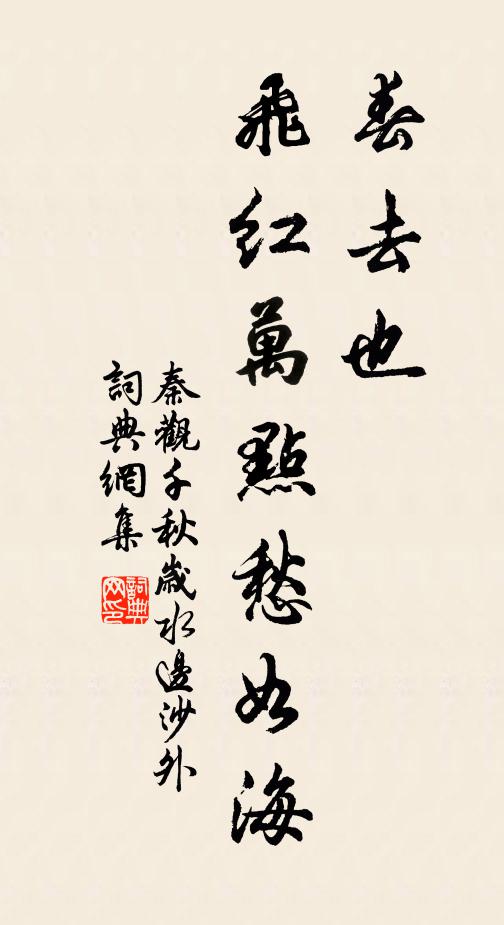 春去也
飛紅萬點愁如海
秦觀千秋歲水邊沙外
詞典網集
詞典網印